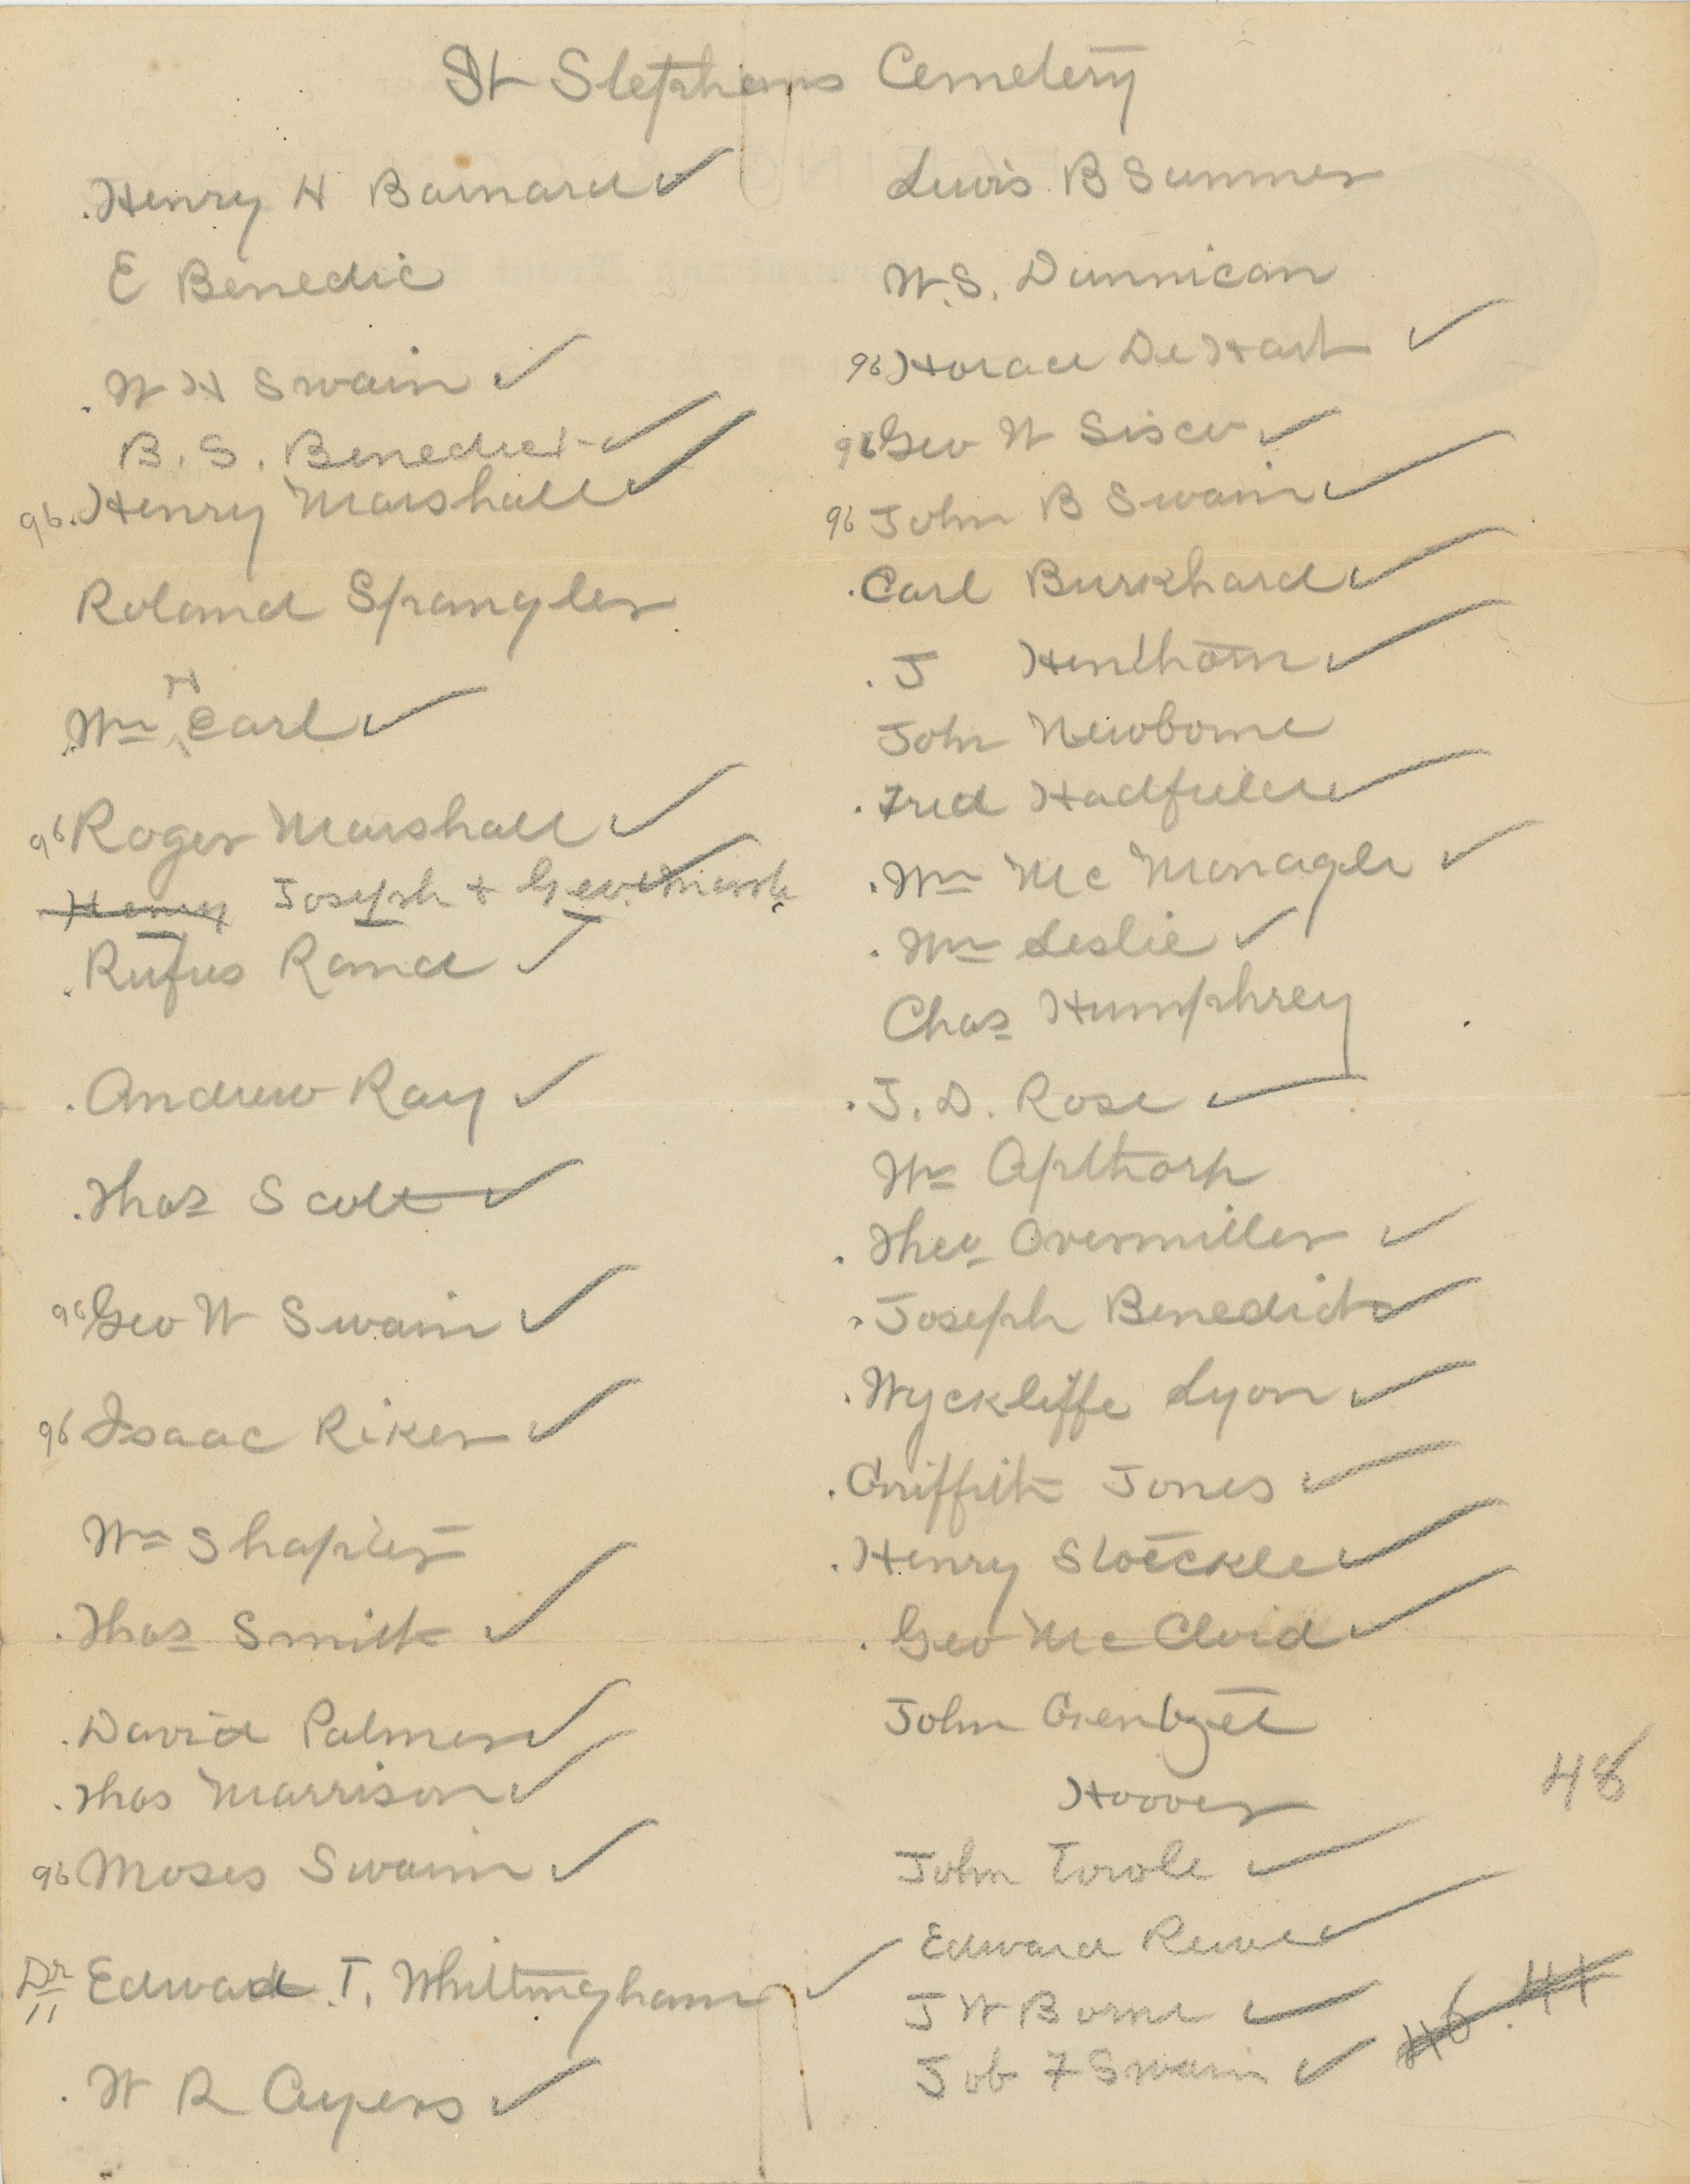 St Stephens Cemetery
.Henry H Barnard ✓
E Benedic
.W H Swain ✓
B. S. Benedict ✓
96. Henry Marshall ✓
Roland Spangler
.Wm H Earl ✓
96 Roger Marshall ✓
Henry Joseph + Geo. Marsh ✓
.Rufus Rand ✓
.Andrew Ray ✓
.Thos Scott ✓
96 Geo W Swain ✓
96 Isaac Riker ✓
Wm Shapter
.Thos Smith ✓
.David Palmer ✓
.Thos Marrison ✓
96 Moses Swaim ✓
Dr Edward T. Whittingham ✓
.W R Ayers ✓
Lewis B Sumner
W. S. Dunnican
96 Horace De Hart ✓
96 Geo W Sisco ✓
96 John B Swain ✓
.Carl Burkhard ✓
.J Henthorn ✓
John Newborne
.Fred Hadfield ✓
.Wm Mc Monagle ✓
.Wm Leslie ✓
Chas Humphrey
.J. D. Rose ✓
Wm Apthorp
.Theo Overmiller ✓
.Joseph Benedict ✓
.Wyckliffe Lyon ✓
.Griffith Jones ✓
.Henry Stoeckle ✓
.Geo Mc Cloid ✓
John
Hoover
48
John Towle ✓
Edward Rewe ✓
J W Borne ✓
46. 41
Job F Swain ✓